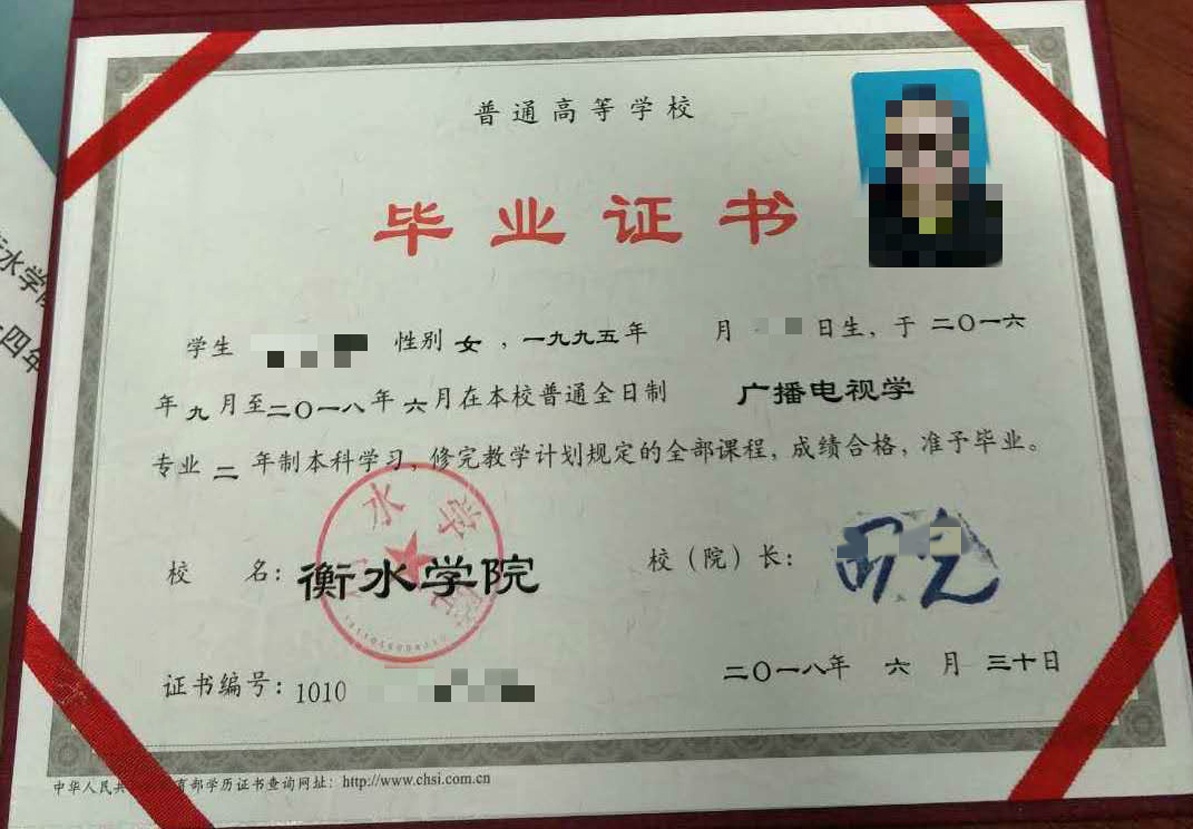 普通高等学校
毕业证书
学生 性别 女 ，一九九五年 月 日生，于 二〇一六
年 九 月至二〇一八年 六 月在本校普通全日制 广播电视学
专业 二 年制本科学习，修完教学计划规定的全部课程，成绩合格，准予毕业。
校 名：衡水学院
校（院）长：
证书编号：1010
二〇一八年 六 月 三十日
中华人民共 育部学历证书查询网址：http://www.chsi.com.cn
水学
水学院
四年